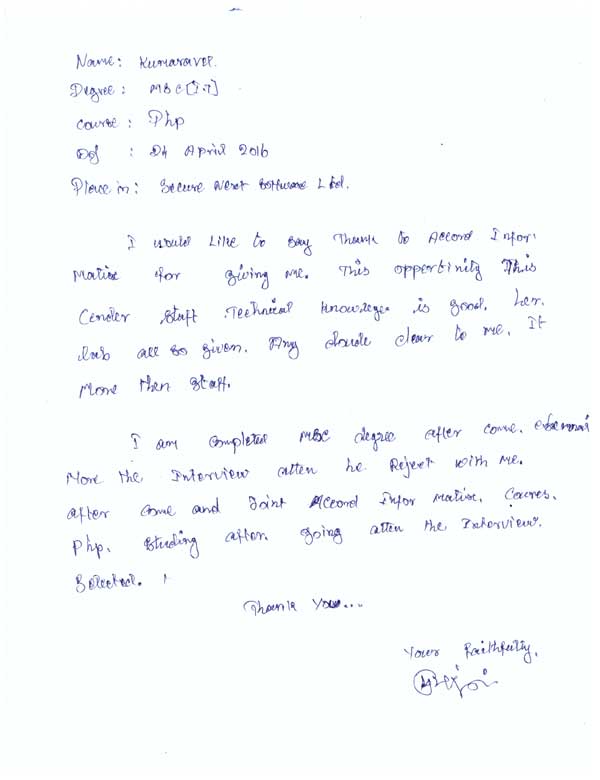 Name: Kumaravel.
Degree: MSC [I.T]
Course: Php
DOJ : 04 April 2016
Place in: Secure Next Software Ltd.
I would Like to Say Thank to Accord Infor
Matix for giving Me. This opportinity This
Cender Staff Technical knowlege is good. her.
lab all so given. Any doude clear to Me. It
More then Staff.
I am completed MSC degree after come.
More the Interview atten he Reject with Me.
after Come and Joint Accord Infor Matix. Coures.
Php. Studing after going atten the Interview.
Selected.
Thank You...
Your Faithfully,